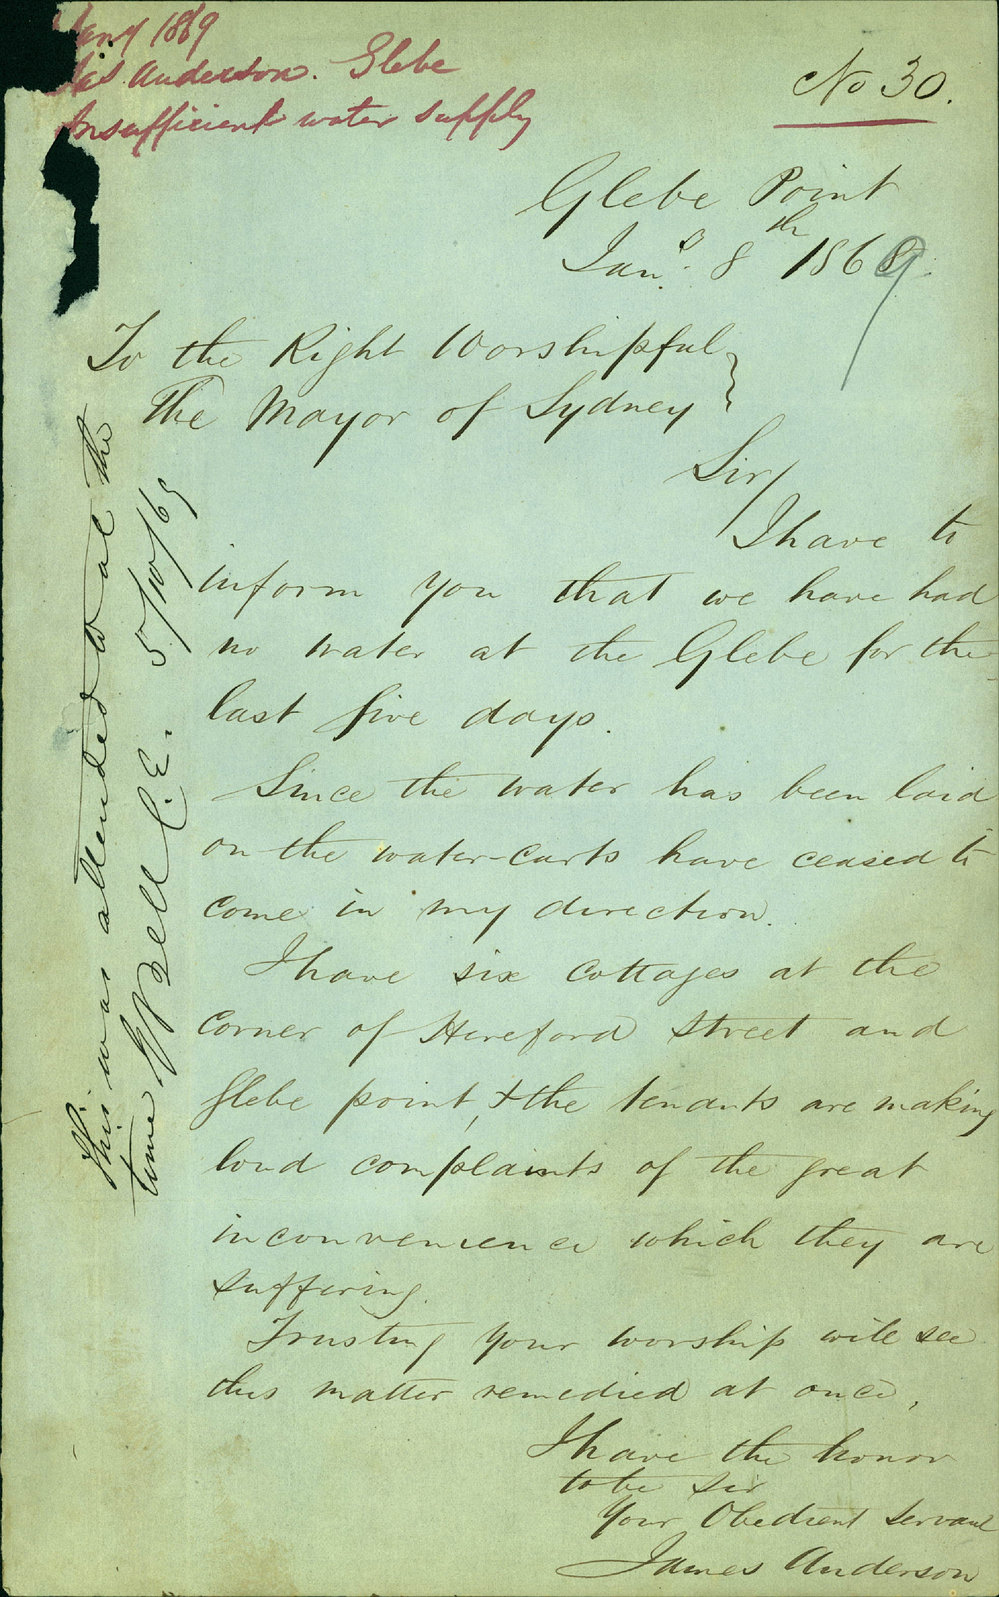 Jany 1869
Jas. Anderson. Glebe
Insufficient water supply
No 30.
Glebe Point
Jany. 8th 1869
To the Right Worshipful
The Mayor of Sydney
Sir/
I have to
inform you that we have had
no water at the Glebe for the
last five days.
Since the water has been laid
on the water-carts have ceased to
come in my direction.
I have six cottages at the
corner of Hereford Street and
glebe point, & the tenants are making
loud complaints of the great
inconvenience which they are
suffering.
Trusting your worship will see
this matter remedied at once,
I have the honor
to be Sir
Your Obedient Servant
James Anderson
This was attended to at the
time Bell C.E. 5/10/69